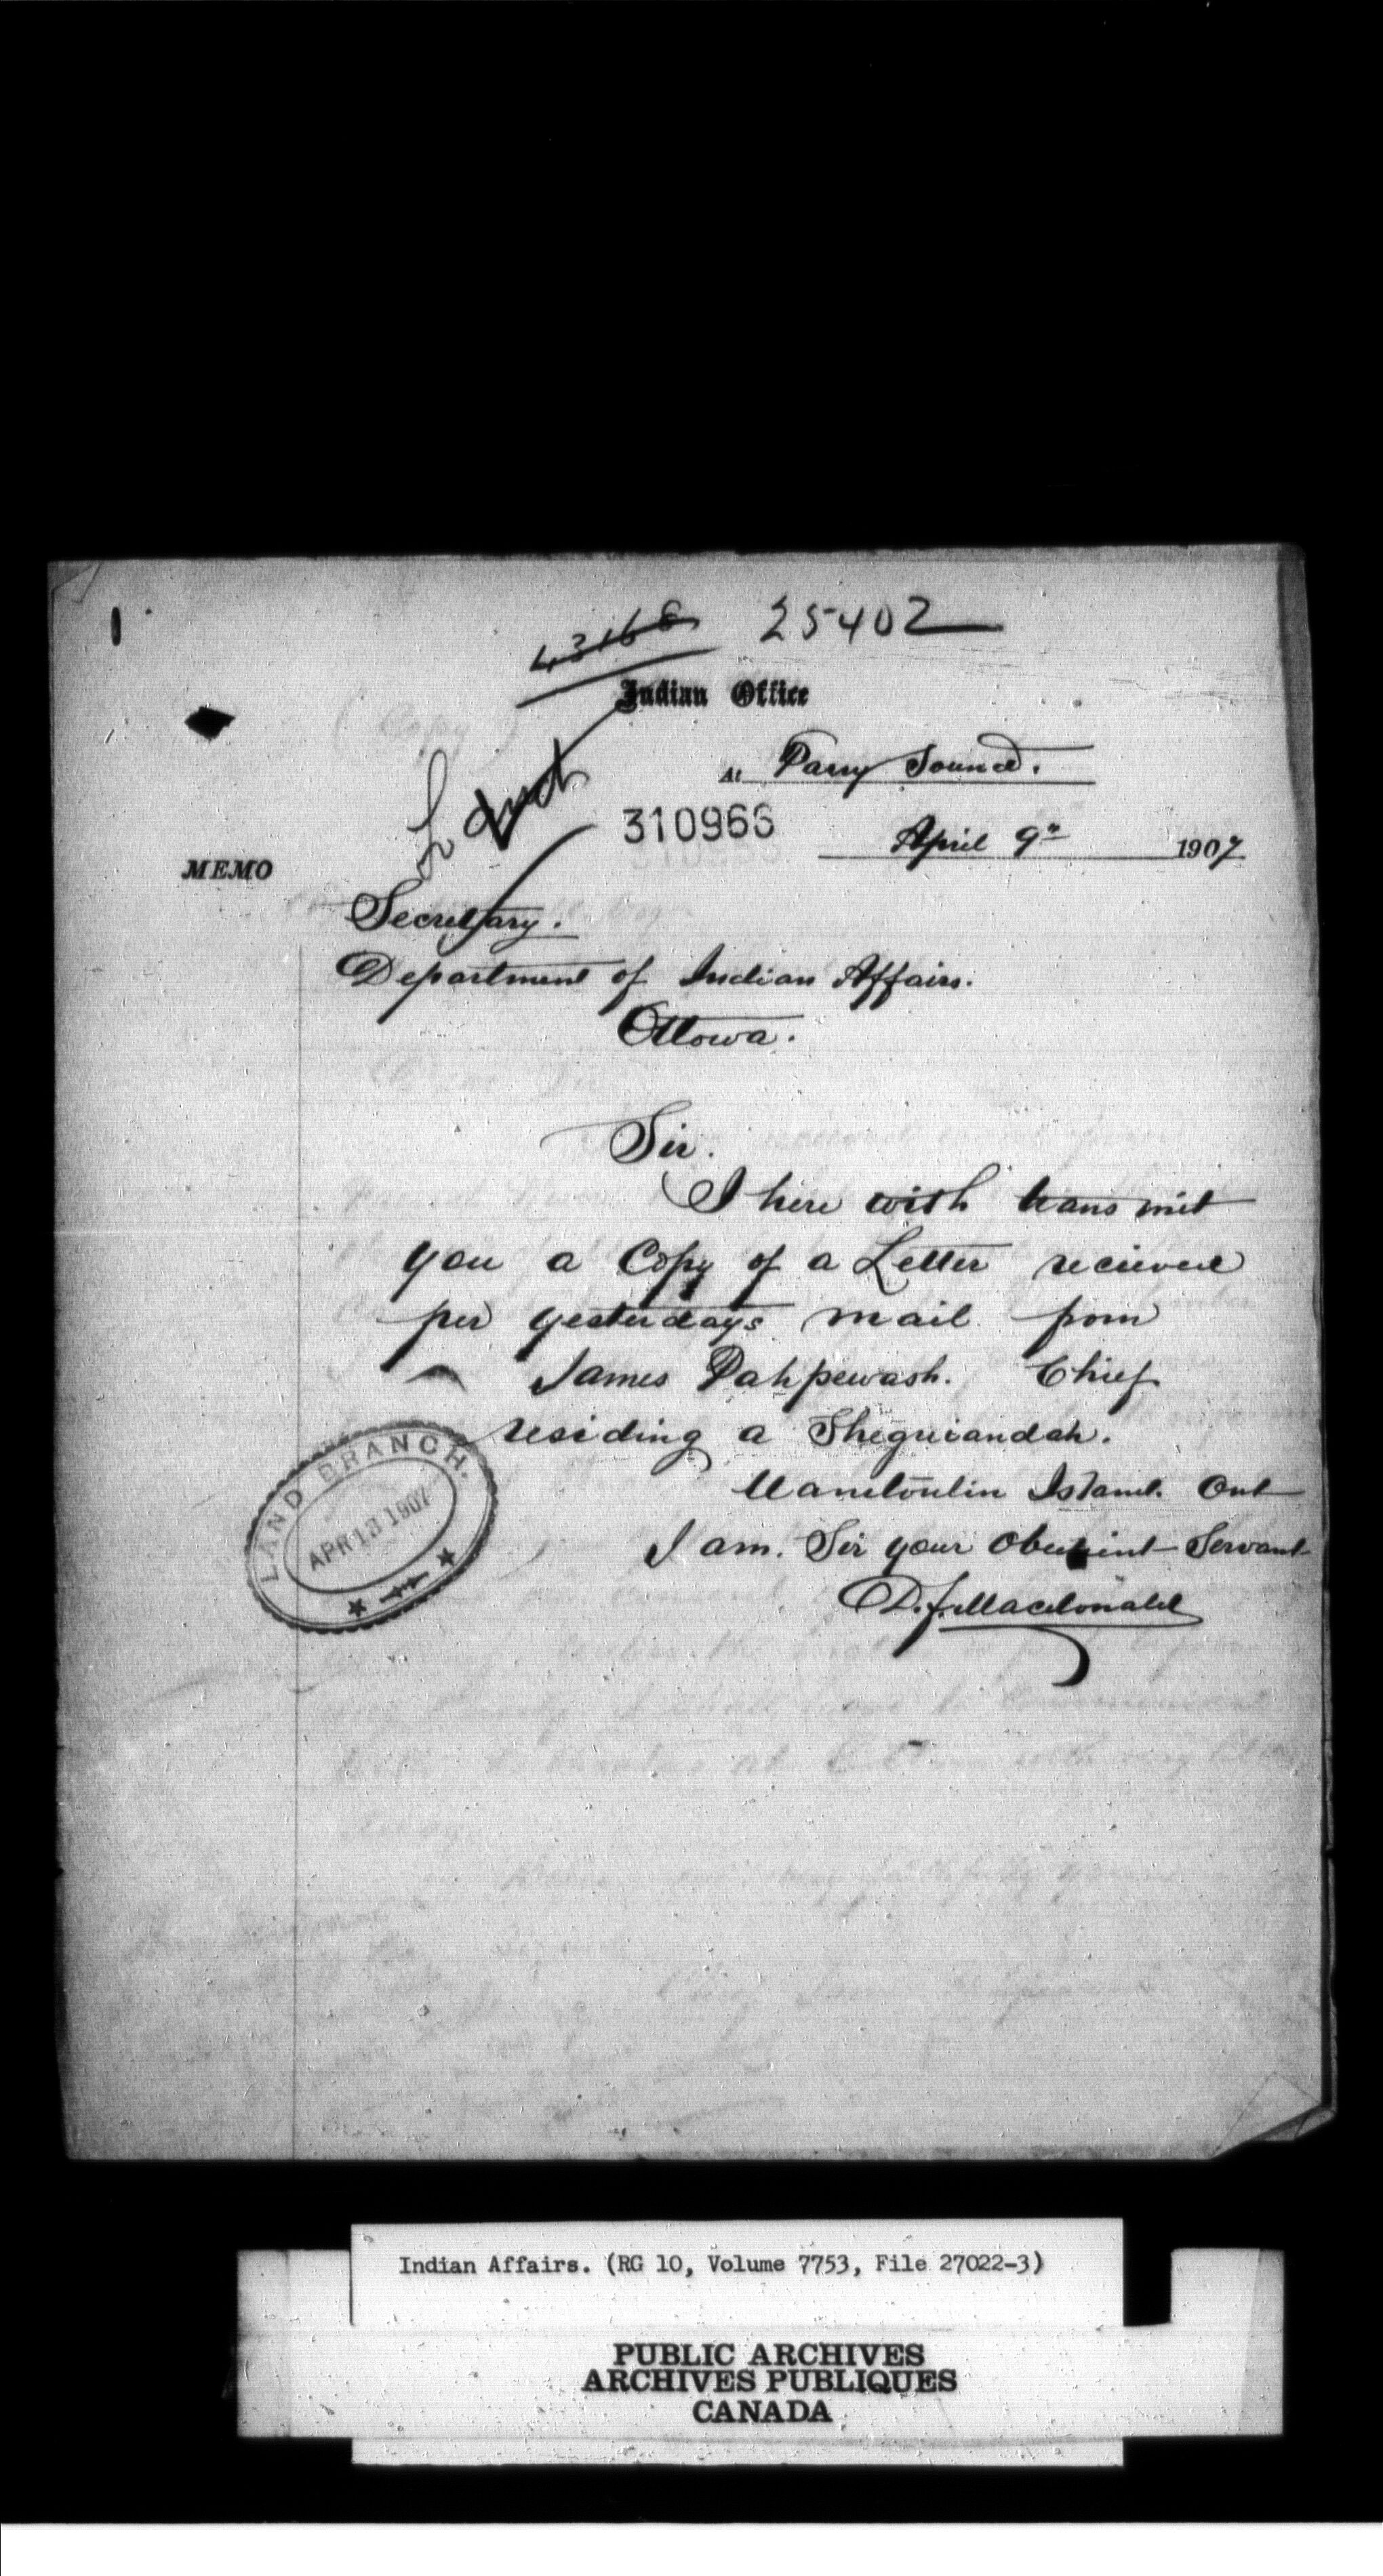 43168 25402
Indian Office
At Parry Sound.
310966
April 9th 1907
MEMO
Secretary.
Department of Indian Affairs.
Ottowa.
Sir.
I here with trans mit
you a Copy of a Letter recieved
per yesterdays mail from
James Pahpewash. Chief
residing a Sheguiandah.
Manitoulin Island. Ont
I am. Sir your Obedient Servant
D. F. Macdonald
LAND BRANCH.
APR 13 1907
Indian Affairs. (RG 10, Volume 7753, File 27022-3)
PUBLIC ARCHIVES
ARCHIVES PUBLIQUES
CANADA